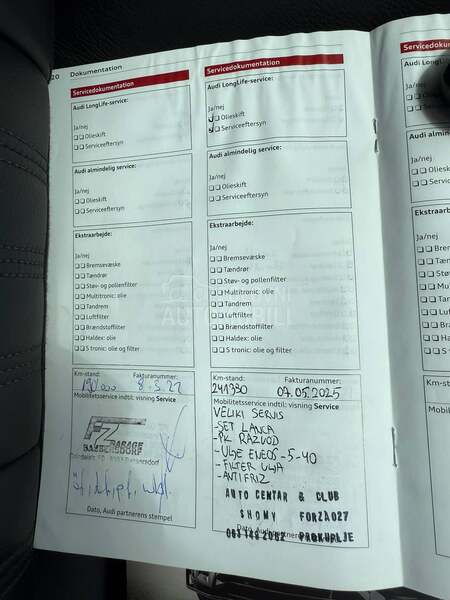 20 Dokumentation
Servicedokumentation
Audi LongLife-service:
Ja/nej
Olieskift
Serviceeftersyn
Audi almindelig service:
Ja/nej
Olieskift
Serviceeftersyn
Ekstraarbejde:
Ja/nej
Bremsevæske
Tændrør
Støv- og pollenfilter
Multitronic: olie
Tandrem
Luftfilter
Brændstoffilter
Haldex: olie
S tronic: olie og filter
Km-stand: Fakturanummer:
190000 8-3.22
Mobilitetsservice indtil: visning Service
FZ GARAGE
BABERSDORF
Dato, Audi partnerens stempel
Servicedokumentation
Audi LongLife-service:
Ja/nej
Olieskift
Serviceeftersyn
Audi almindelig service:
Ja/nej
Olieskift
Serviceeftersyn
Ekstraarbejde:
Ja/nej
Bremsevæske
Tændrør
Støv- og pollenfilter
Multitronic: olie
Tandrem
Luftfilter
Brændstoffilter
Haldex: olie
S tronic: olie og filter
Km-stand: Fakturanummer:
241930 07.05.2025
Mobilitetsservice indtil: visning Service
VELIKI SERVIS
-SET LANCA
-PK RAZVOD
-ULJE ENEOS-5-40
-FILTER ULJA
-ANTIFRIZ
AUTO CENTAR & CLUB
SHOMY FORZA027
PROKUPLJE
Dato, Audi
Servicedokum
Audi LongLife-s
Ja/nej
Olieskift
Servic
Audi almind
Ja/nej
Olieskift
Service
Ekstraarbej
Ja/nej
Brems
Tændr
Støv-
Multi
Tandr
Luftfi
Brænd
Halde
S tro
Km-stand:
Mobilitets